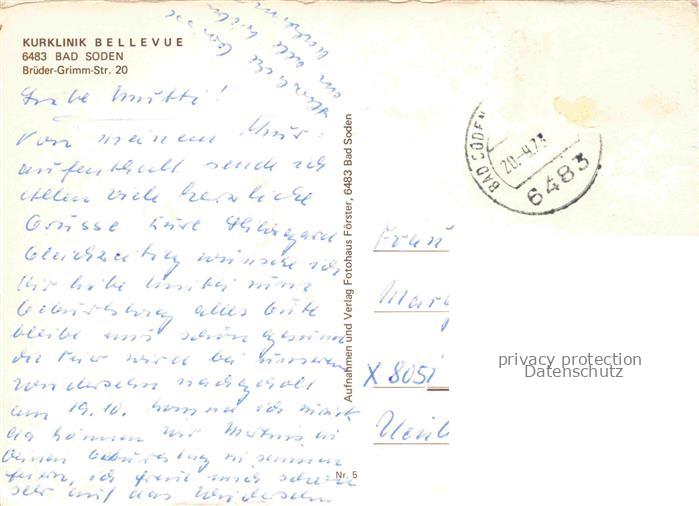 KURKLINIK BELLEVUE
6483 BAD SODEN
Brüder-Grimm-Str. 20
Liebe Mutti!
Von meinem Kur-
aufenthalt sende ich
Allen viele herzliche
Grüsse Eure Hildegard
Gleichzeitig wünsche ich
Dir liebe Mutti zum
Geburtstag alles Gute
bleibe uns schön gesund
die Feier wird bei unserem
Wiedersehn nachgeholt
am 19.10. komme ich zurück
da können wir
Deinen Geburtstag zusammen
feiern, ich freue mich schon
sehr auf das Wiedersehn
Aufnahmen und Verlag Fotohaus Förster, 6483 Bad Soden
Nr. 5
BAD SODEN
20.-9.73
6483
Frau
X 8051
privacy protection
Datenschutz